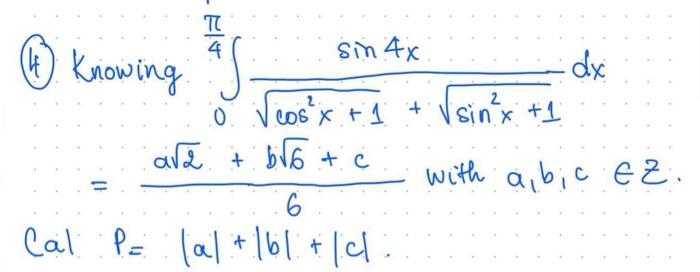 ④ Knowing ∫₀^{π/4} \frac{sin 4x}{\sqrt{cos²x + 1} + \sqrt{sin²x + 1}} dx
= \frac{a√2 + b√6 + c}{6} with a, b, c ∈ Z.
Cal P = |a| + |b| + |c|.